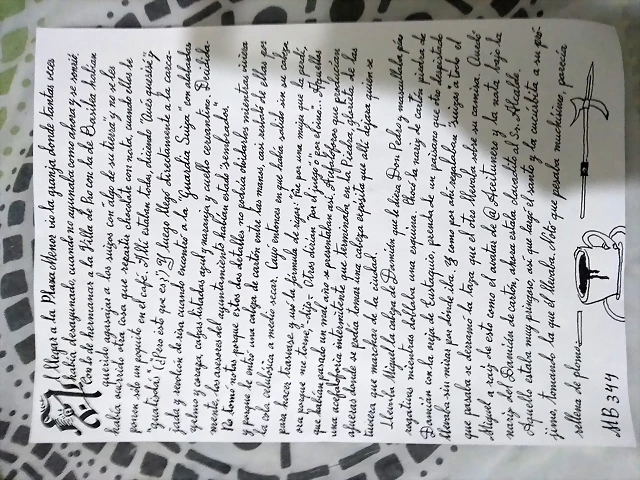 Al llegar a la Plaza Menor vio la granja donde tantas veces
había desayunado, cuando no ayunaba como ahora y se sonrió.
Con lo de hermanar a la Villa de Pío con la de Basilea habían
querido agasajar a los suizos con algo de su tierra y no se les
había ocurrido otra cosa que repartir chocolate con nata, cuando ellos le
ponen solo un poquito en el café. Allí estaban todos, diciendo
"guatisdás" (¿Pero esto que es?) Y luego llegó directamente a la carca-
jada y revolcó de risa cuando encontró a la "Guardia Suiza" con alabardas
yelmo y coraza, calzas listadas azul y naranja y cuello cervantino. Decidida-
mente, los asesores del ayuntamiento habían estado "sembrados".
No tomó notas porque estos detalles no podría olvidarlos mientras viviera
y porque le entró una cabeza de cartón entre las manos, casi resbaló de ellas por
la cola celulósica a medio secar. Cayó entonces en que había salido sin su cabeza
para hacer turnarse y usó la fórmula de rigor: "Fue por una mujer que la perdí,
ora porque me tome", dijo.- Otros dicían "por el juego" o "por el vino"... Aquellos
que habían pasado un mal año se presentaban así,
una acefaloforia intermitente que terminaba en la Piedra, plazuela de las
afueras donde se podía tomar una cabeza expósita que allí dejara quien se
tuviera que marchar de la ciudad.
Llevaba Miguel la cabeza del Damián que le diera Don Pedro y mascullaba por
negativas mientras doblaba una esquina. Chocó la nariz de cartón piedra de
Damián con la oreja de Eustaquio, prenda de un paisano que iba despistado
Llevaba sin mirar por dónde iba. Y como por ahí regalaban "suizos" a todo el
que pasaba se derramó la taza que el otro llevaba sobre su camisa. Quedó
Miquel a raíz de esto como el avatar de @Aceitunero y la nata bajo la
nariz del Damián de cartón, ahora estaba clavadito al Sr. Alcalde.
Aquello estaba muy pringoso, así que largó el santo y la cucusbita a su pró-
jimo, tomando la que él llevaba. Notó que pesaba muchísimo, parecía
rellena de plomo
MB 344